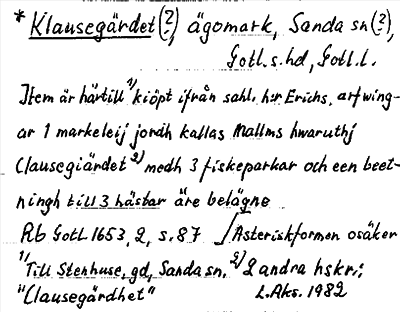 * Klausegärdet (?), ägomark, Sanda sn (?),
Gotl. s. hd, Gotl. l.
Item är härtill 1) kiöpt ifrån sahl. hr Erichs, arfwing-
ar 1 markeleij jordh kallas Mallms hwaruthj
Clausegiärdet 2) medh 3 fiskeparkar och een beet-
ningh till 3 hästar äre belägne
Rb Gotl 1653, 2, s. 87 / Asteriskformen osäker
1) Till Stenhuse, gd, Sanda sn. 2) 2 andra hskr.:
"Clausegärdhet" L. Aks. 1982